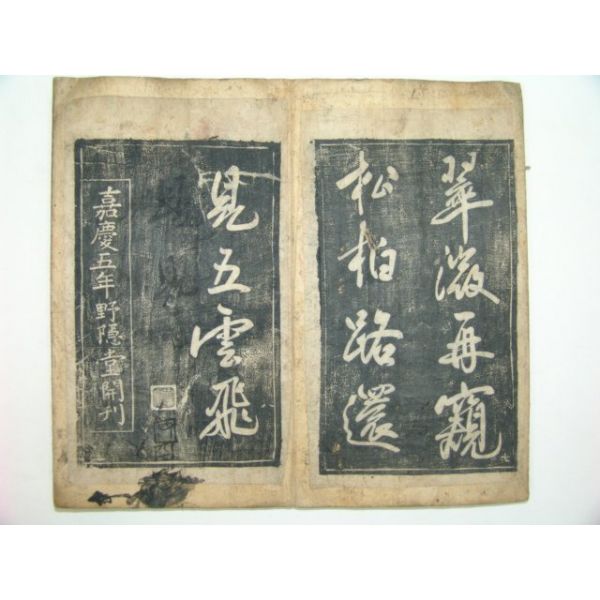 翠微再窺
松柏路還
見五雲飛
嘉慶五年野隱堂開刊